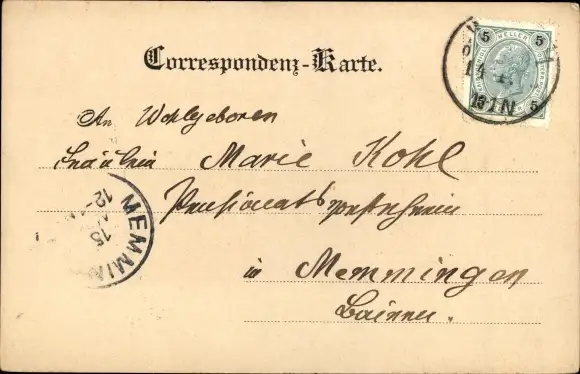 Correspondenz-Karte.
5 HELLER 5
5
An Wohlgeboren
Fräulein Marie Kohl
Pensionatsvorsteherin
in Memmingen
Baiern.
MEMMIN
15
12